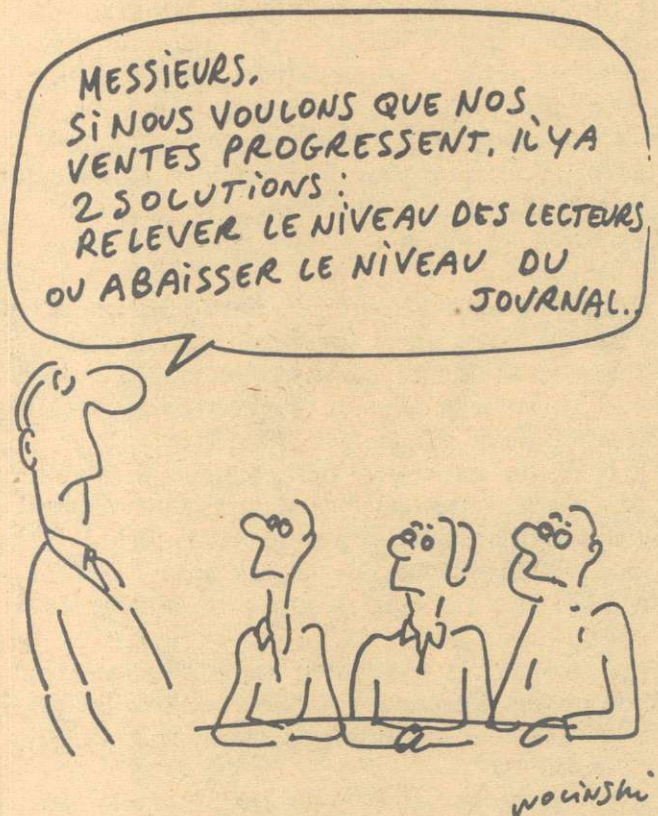 MESSIEURS.
Si NOUS VOULONS QUE NOS
VENTES PROGRESSENT. iL Y A
2 SOLUTiONS :
RELEVER LE NiVEAU DES LECTEURS
OU ABAiSSER LE NiVEAU DU
JOURNAL..
WOLiNSKi